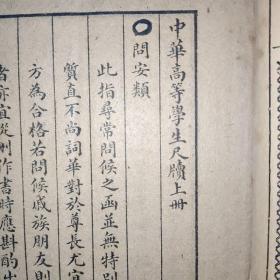 中華高等學生尺牘上冊
問安類
此指尋常問候之函並無特別
質直不尚詞華對於尊長尤宜
方為合格若問候戚族朋友則
者亦宜從刪作書時應斟酌出